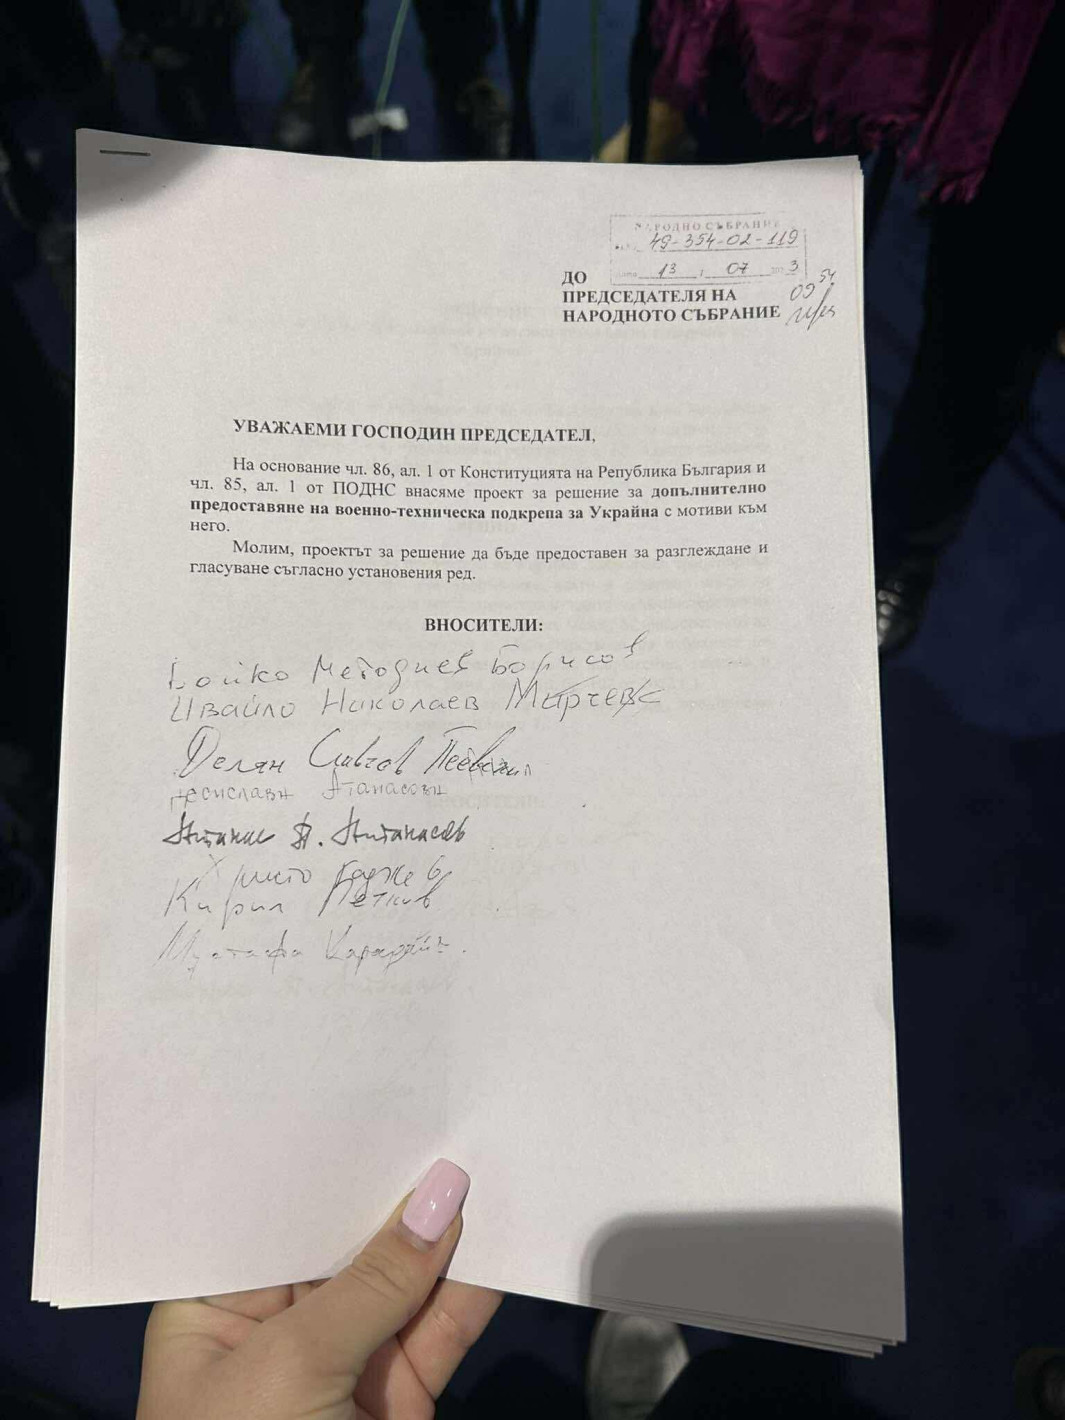 НАРОДНО СЪБРАНИЕ
49-354-02-119
13 07 2023
ДО
ПРЕДСЕДАТЕЛЯ НА
НАРОДНОТО СЪБРАНИЕ
09 54
УВАЖАЕМИ ГОСПОДИН ПРЕДСЕДАТЕЛ,
На основание чл. 86, ал. 1 от Конституцията на Република България и
чл. 85, ал. 1 от ПОДНС внасяме проект за решение за допълнително
предоставяне на военно-техническа подкрепа за Украйна с мотиви към
него.
Молим, проектът за решение да бъде предоставен за разглеждане и
гласуване съгласно установения ред.
ВНОСИТЕЛИ:
Бойко Методиев Борисов
Ивайло Николаев Мирчев
Делян Славчов Пеевски
Десислава Атанасова
Атанас П. Атанасов
Христо Гаджев
Кирил Петков
Мустафа Карадайъ